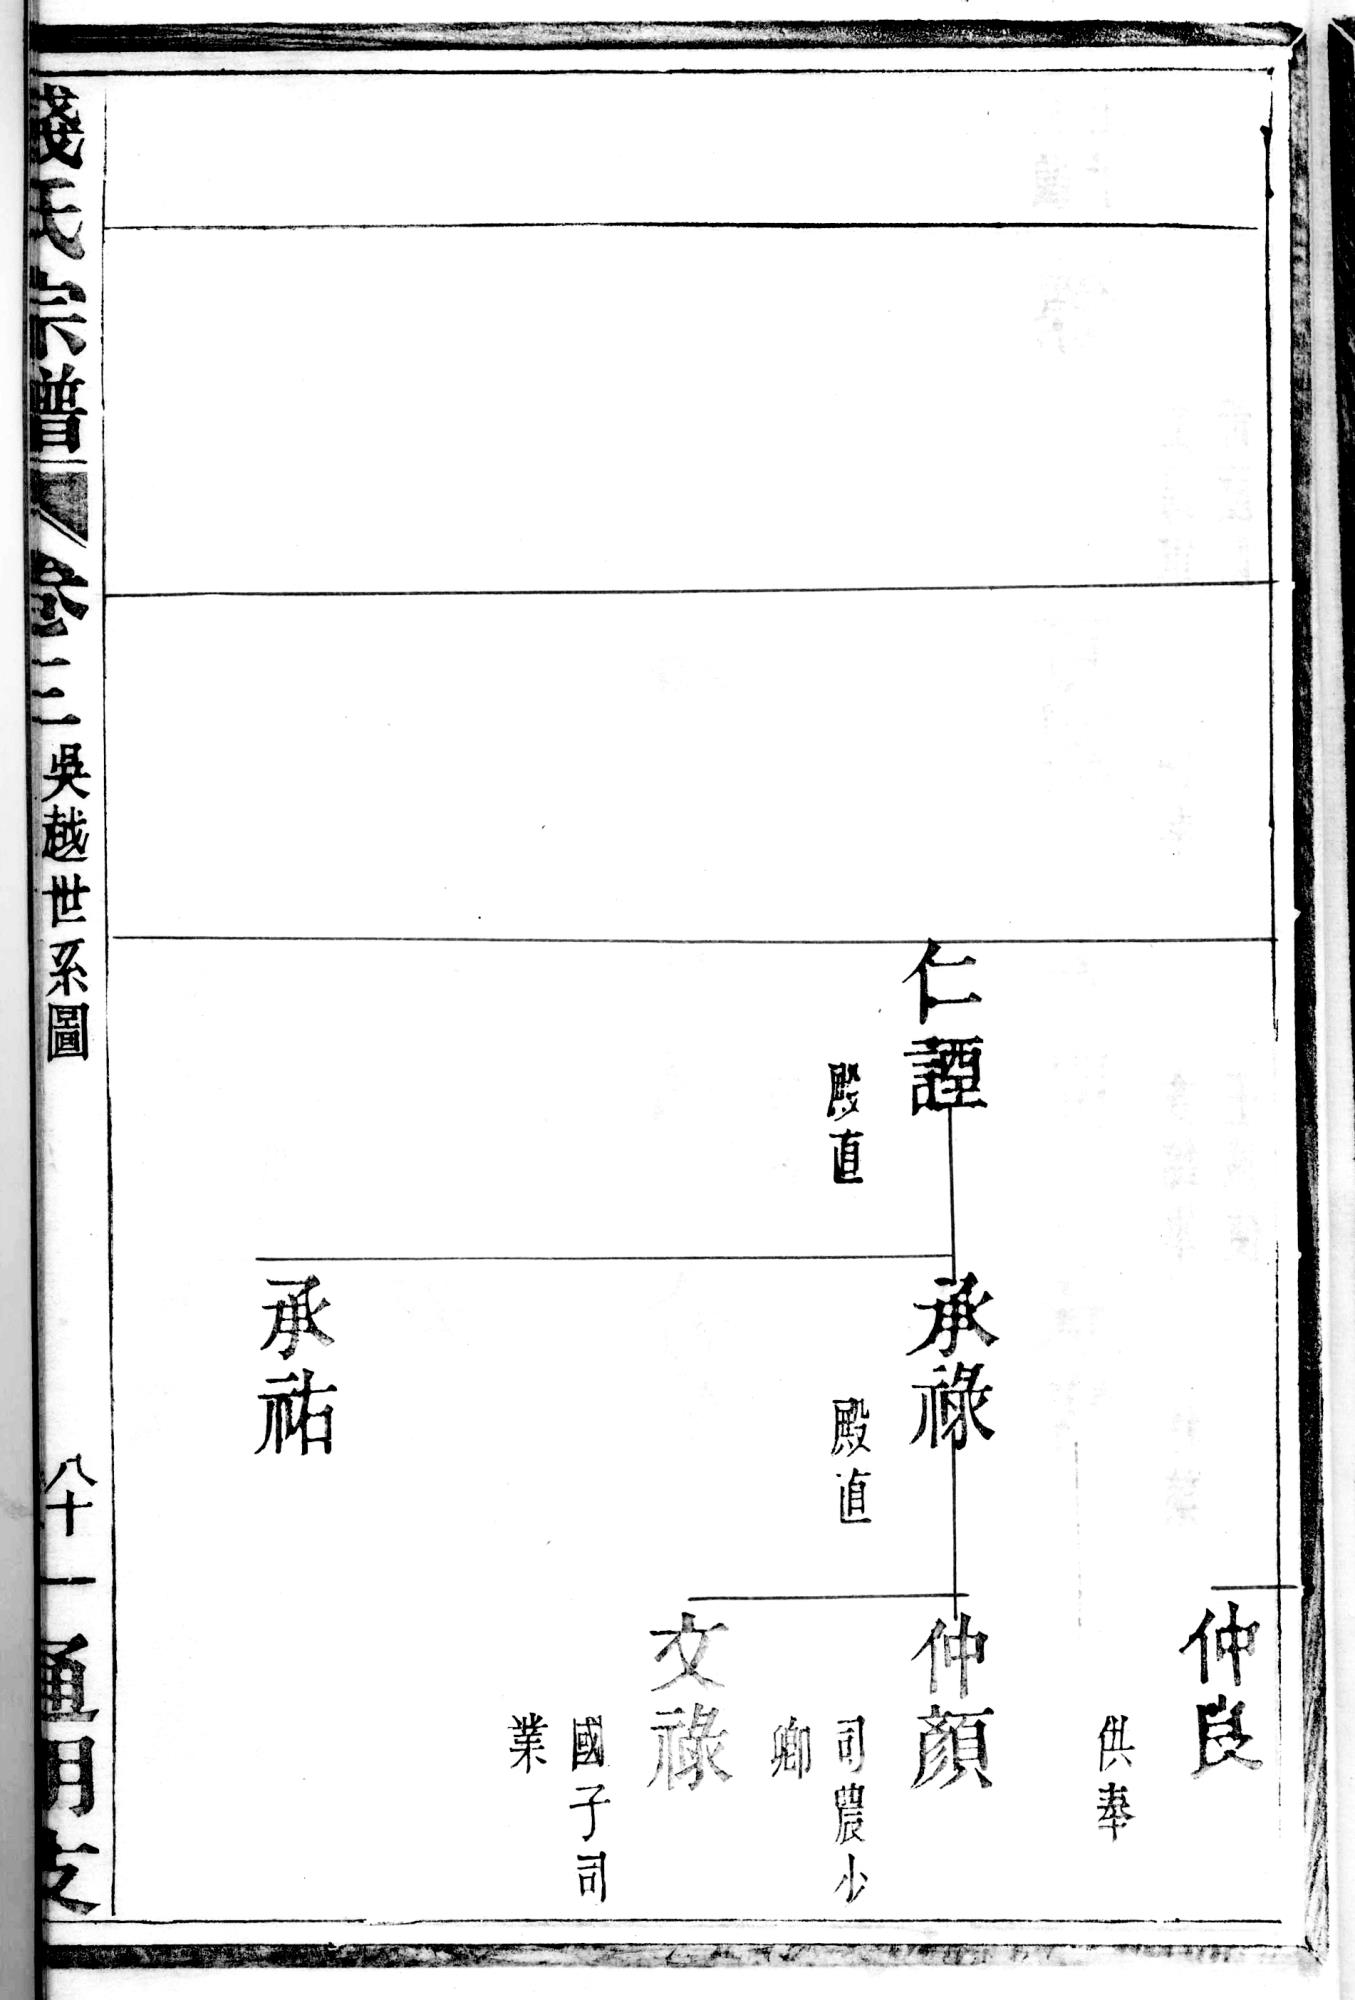 仲良
供奉
仁諲
殿直
承祿
殿直
仲顏
司農少
卿
文祿
國子司
業
承祐
錢氏宗譜
卷三
吳越世系圖
八十一
通明支